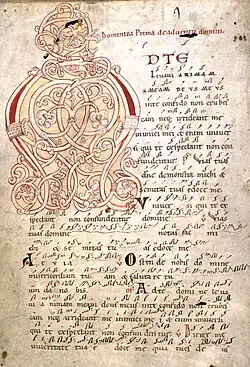 Dominica Prima de aduentu domini.
D TE
leuaui ANIMAM
MEAM DEVS MEVS
inte confido non erubes
cam neq; irrideant me
inimici mei etenim uniuer
si qui te expectant non con
fundentur Vias tuas
domine demonstra michi et
semitas tuas edoce me
Vniuersi qui te ex
spectant non confundentur domine Vias
tuas domine notas fac mi
chi et semitas tuas edoce me
A Ostende nobis domine
misericordiam tuam et salutare tu
um da nobis Ad te domine leua
ui animam meam deus meus inte confido non erubes
cam neq; irrideant me inimici mei etenim uniuersi
qui te expectant non confundentur Dirige me in
ueritate tua et doce me quia tu